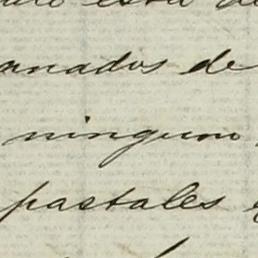 esta
anados de
ninguno
pastales